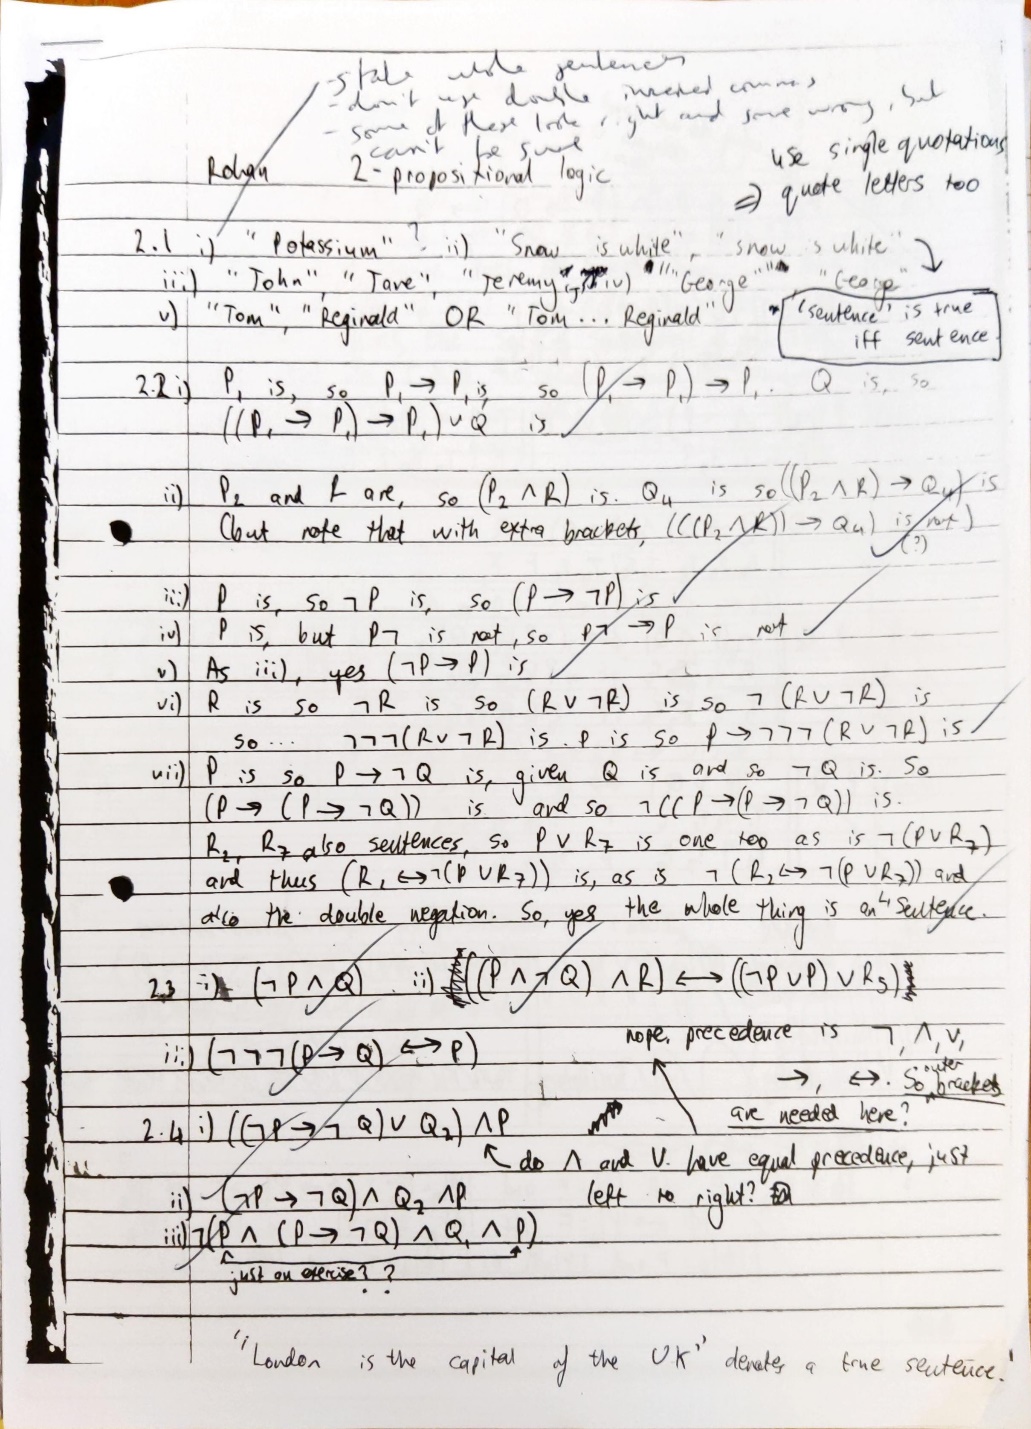 - state whole sentences
- don't use double inverted commas
- some of these look right and some wrong, but
can't be sure
use single quotations
⇒ quote letters too
Rohan 2 - propositional logic
2.1 i) "Potassium" ? ii) "Snow is white", "snow s white"
iii) "John", "Jave", "Jeremy" iv) ""George"", "George"
v) "Tom", "Reginald" OR "Tom ... Reginald"
'sentence' is true
iff sentence
2.2 i) P₁ is, so P₁ → P₁ is, so (P₁ → P₁) → P₁. Q is, so
((P₁ → P₁) → P₁) ∨ Q is
ii) P₂ and R are, so (P₂ ∧ R) is. Q₄ is so ((P₂ ∧ R) → Q₄) is
(but note that with extra brackets, (((P₂ ∧ R)) → Q₄) is not)
(?)
iii) P is, so ¬P is, so (P → ¬P) is
iv) P is, but P¬ is not, so P¬ → P is not
v) As iii), yes (¬P → P) is
vi) R is so ¬R is so (R ∨ ¬R) is so ¬(R ∨ ¬R) is
so ... ¬¬¬(R ∨ ¬R) is. P is so P → ¬¬¬(R ∨ ¬R) is
vii) P is so P → ¬Q is, given Q is and so ¬Q is. So
(P → (P → ¬Q)) is and so ¬((P → (P → ¬Q)) is.
R₂, R₇ also sentences, so P ∨ R₇ is one too as is ¬(P ∨ R₇)
and thus (R₂ ↔ ¬(P ∨ R₇)) is, as is ¬(R₂ ↔ ¬(P ∨ R₇)) and
also the double negation. So, yes the whole thing is an L₁ sentence.
2.3 i) (¬P ∧ Q) ii) ((P ∧ ¬Q) ∧ R) ↔ ((¬P ∨ P) ∨ R₃)
iii) (¬¬¬(P → Q) ↔ P)
nope. precedence is ¬, ∧, ∨,
→, ↔. So outer brackets
are needed here?
2.4 i) ((¬P → ¬Q) ∨ Q₂) ∧ P
do ∧ and ∨ have equal precedence, just
left to right?
ii) (¬P → ¬Q) ∧ Q₂ ∧ P
iii) ¬(P ∧ (P → ¬Q) ∧ Q₁ ∧ P)
just an exercise? ?
"'London is the capital of the UK' denotes a true sentence.'